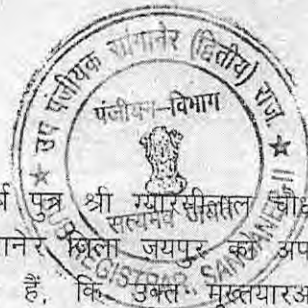 उप पंजीयक सांगानेर (द्वितीय) राज.
पंजीयन-विभाग
सत्यमेव जयते
SUB REGISTRAR, SANGANER-II
पुत्र श्री ग्यारसीलाल
जिला जयपुर को अप
है, कि उक्त मुख्तयारअ